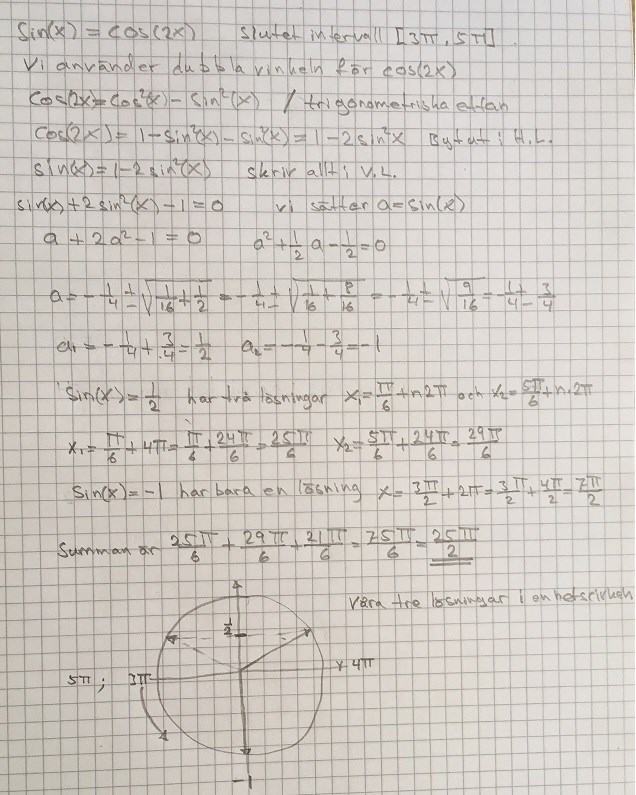 Sin(x) = cos(2x) slutet intervall [3π, 5π]
Vi använder dubbla vinkeln för cos(2x)
Cos(2x)=cos²(x) - sin²(x) / trigonometriska ettan
Cos(2x) = 1-sin²(x)-sin²(x) = 1-2sin²x Bytut i H.L.
sin(x)=1-2sin²(x) skriv allt i V.L.
sin(x)+2sin²(x)-1=0 vi sätter a=sin(x)
a + 2a² - 1 = 0 a² + 1/2 a - 1/2 = 0
a = -1/4 ± √(1/16 + 1/2) = -1/4 ± √(1/16 + 8/16) = -1/4 ± √(9/16) = -1/4 ± 3/4
a₁ = -1/4 + 3/4 = 1/2 a₂ = -1/4 - 3/4 = -1
Sin(x) = 1/2 har två lösningar x₁ = π/6 + n2π och x₂ = 5π/6 + n·2π
x₁ = π/6 + 4π = π/6 + 24π/6 = 25π/6 x₂ = 5π/6 + 24π/6 = 29π/6
Sin(x) = -1 har bara en lösning x = 3π/2 + 2π = 3π/2 + 4π/2 = 7π/2
Summan är 25π/6 + 29π/6 + 21π/6 = 75π/6 = 25π/2
Våra tre lösningar i enhetscirkeln
1/2
5π; 3π 4π
-1